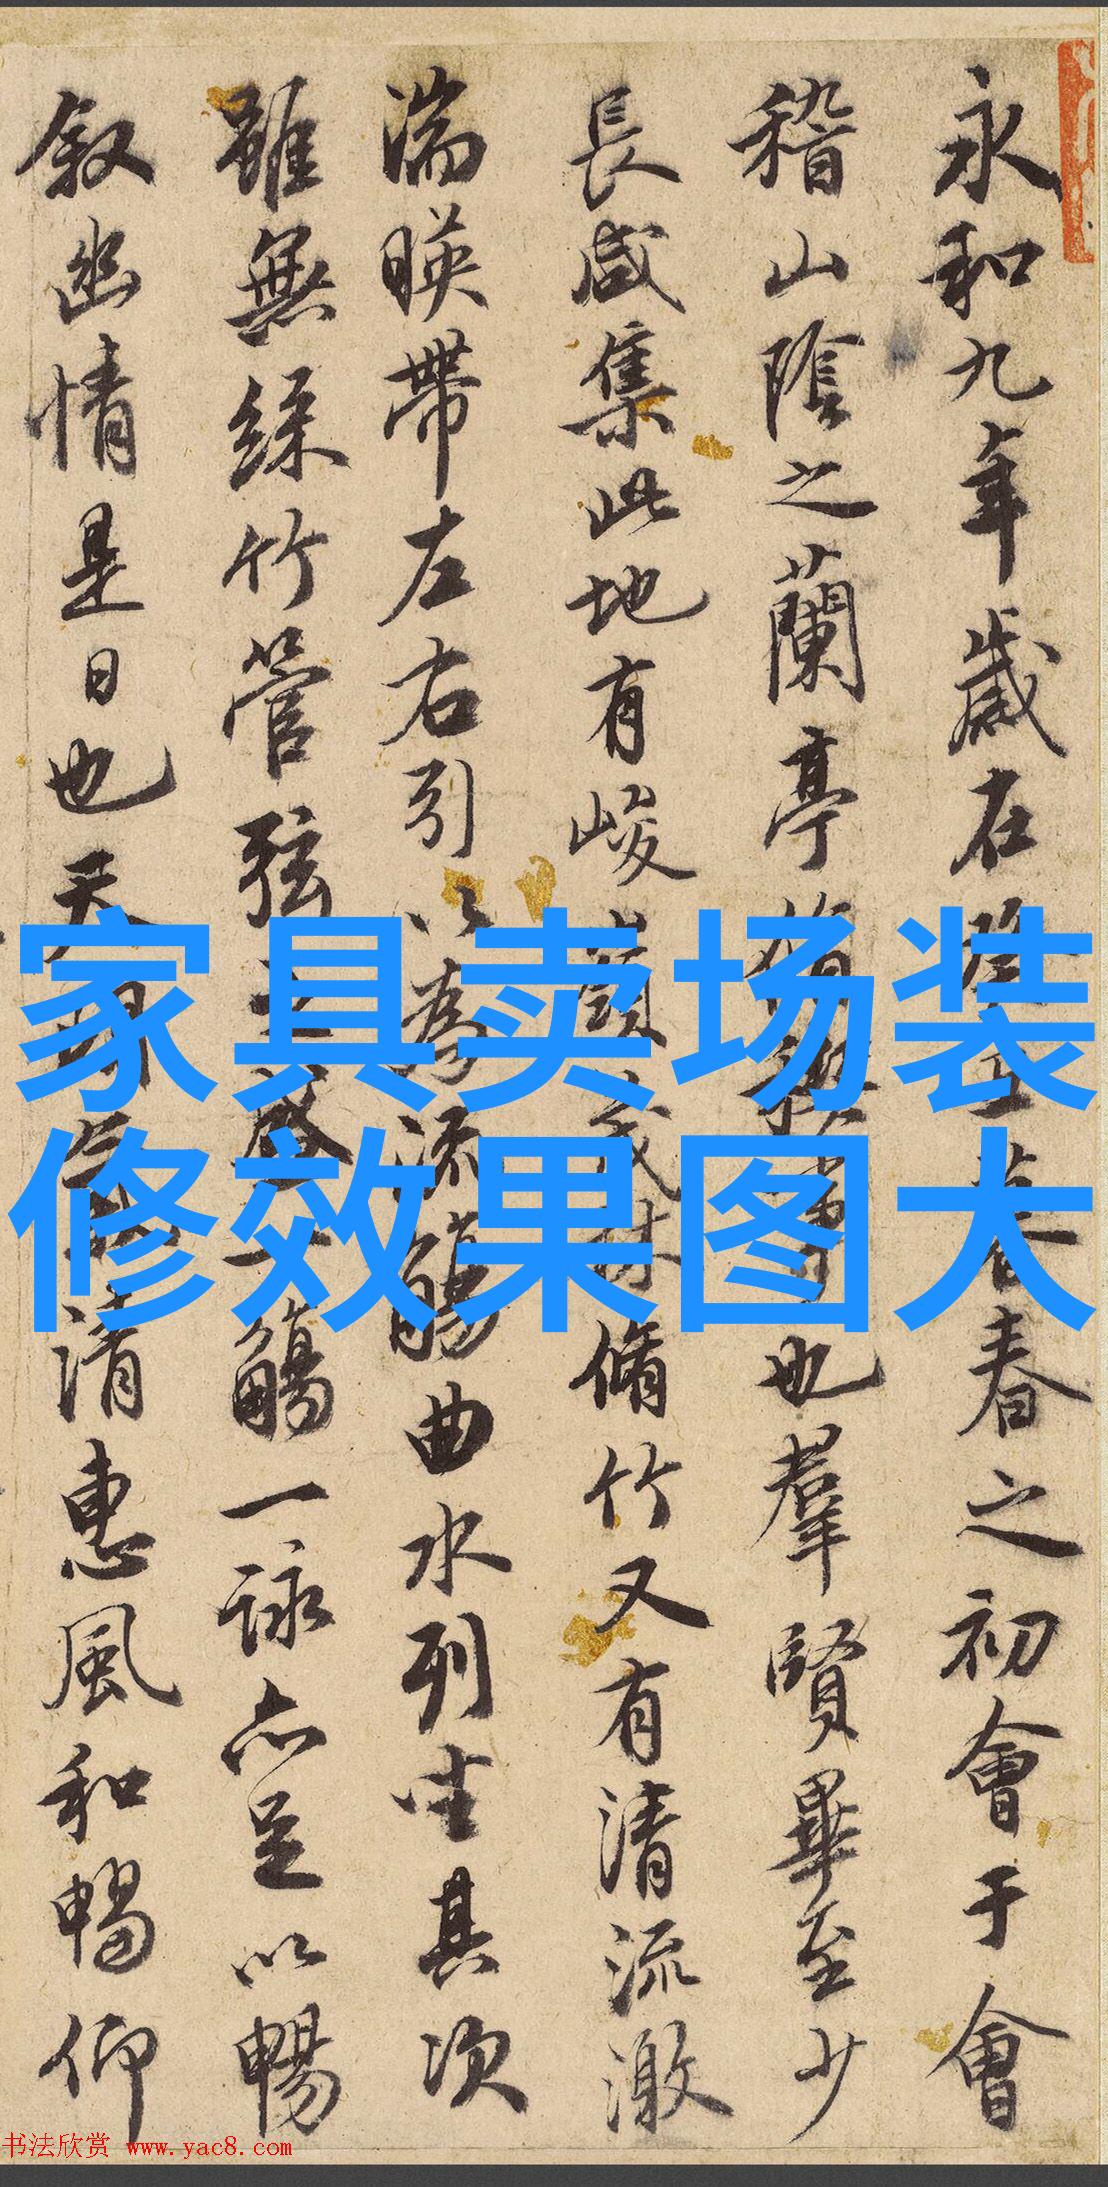 永和九年歲在癸丑暮春之初會于會
稽山陰之蘭亭脩禊事也羣賢畢至少
長咸集此地有峻嶺茂林脩竹又有清流激
湍暎帶左右引以為流觴曲水列坐其次
雖無絲竹管弦之盛一觴一詠亦足以暢
叙幽情是日也天朗氣清惠風和暢仰
家具卖场装
修效果图大
书法欣赏 www.yac8.com